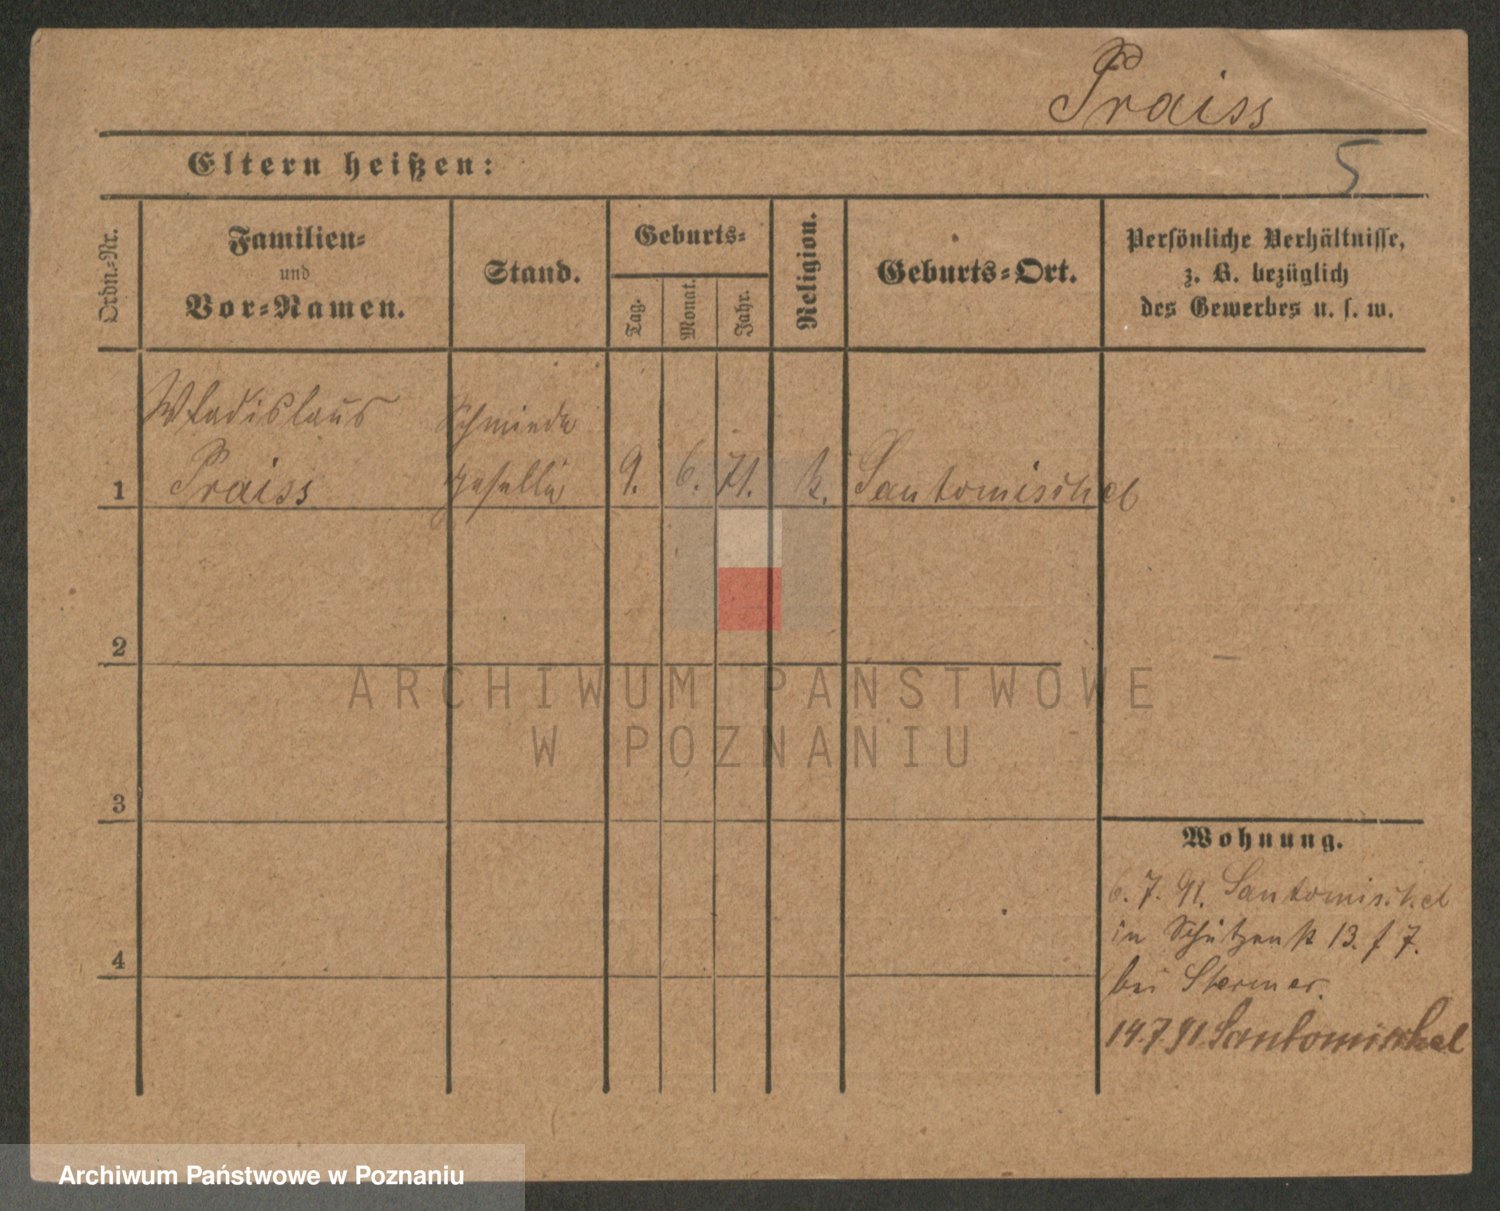 Praiss
Eltern heißen:
5
Ordn.-Nr.
Familien-
und
Vor-Namen.
Stand.
Geburts-
Tag.
Monat.
Jahr.
Religion.
Geburts-Ort.
Persönliche Verhältnisse,
z. B. bezüglich
des Gewerbes u. s. w.
Wladislaus
Praiss
Schmiede
geselle
1
9.
6.
71.
k.
Santomischel
2
3
4
ARCHIWUM PAŃSTWOWE
W POZNANIU
Wohnung.
6. 7. 91. Santomischel
in Schützenstr 13. f 7.
bei
14.7.91 Santomischel
Archiwum Państwowe w Poznaniu